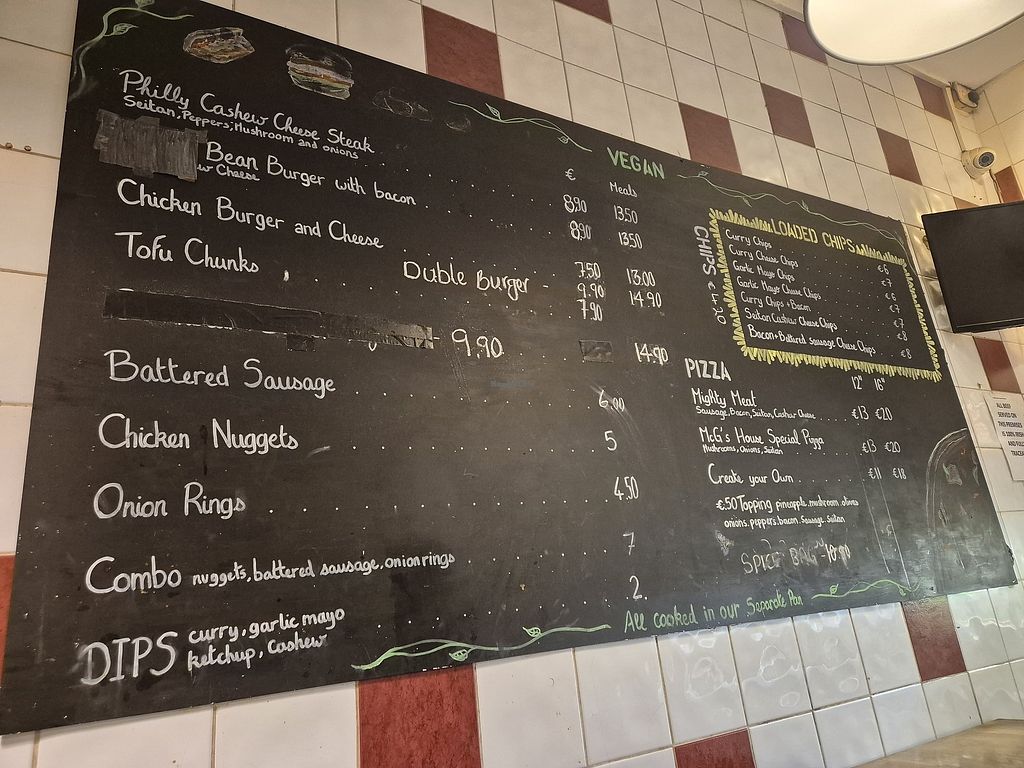 VEGAN
€ Meals
Philly Cashew Cheese Steak . . . . 8.90 13.50
Seitan, Peppers, Mushroom and onions
Bean Burger with bacon . . . . 8.90 13.50
w Cheese
Chicken Burger and Cheese . . . . 7.50 13.00
Duble Burger - 9.90 14.90
Tofu Chunks . . . . 7.90
9.90 . . . 14.90
Battered Sausage . . . . 6.00
Chicken Nuggets . . . . 5
Onion Rings . . . . 4.50
Combo nuggets, battered sausage, onion rings . . . . 7
DIPS curry, garlic, mayo . . . . 2.
ketchup, Cashew
CHIPS €4.20
LOWDED CHIPS
Curry Chips . . . . €6
Curry Cheese Chips . . . . €7
Garlic Mayo Chips . . . . €6
Garlic Mayo Cheese Chips . . . . €7
Curry Chips + Bacon . . . . €7
Seitan Cashew Cheese Chips . . . . €8
Bacon + Battered sausage Cheese Chips . . €8
PIZZA 12" 16"
Mighty Meat . . . . €13 €20
Sausage, Bacon, Seitan, Cashew Cheese
McG's House Special Pizza . . €13 €20
Mushrooms, Onions, Seitan
Create your Own . . . . €11 €18
€.50 Topping pineapple, mushroom, olives
onions, peppers, bacon, Sausage, Seitan
SPICE BAG
All cooked in our Separate Pan
ALL BEEF
SERVED ON
THIS PREMISES